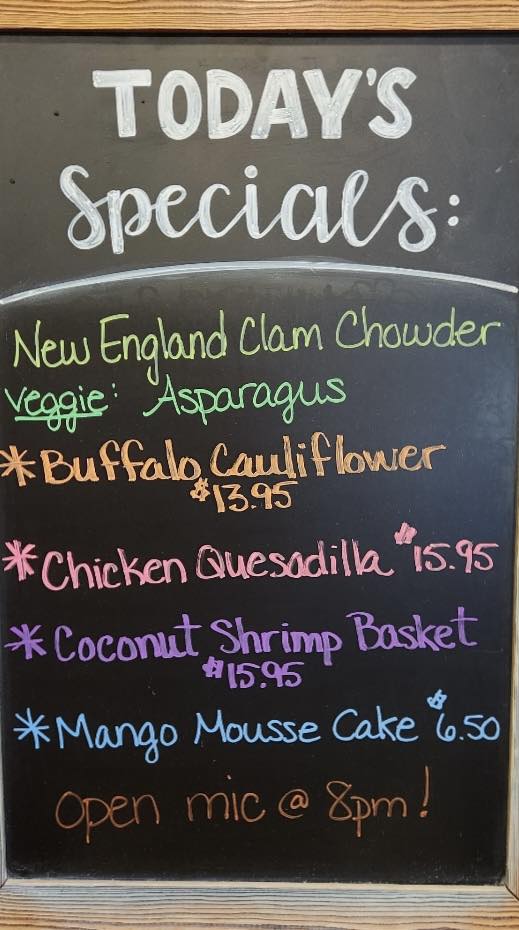 TODAY'S
Specials:
New England Clam Chowder
veggie: Asparagus
*Buffalo Cauliflower
$13.95
*Chicken Quesadilla $15.95
*Coconut Shrimp Basket
$15.95
*Mango Mousse Cake $6.50
Open mic @ 8pm!